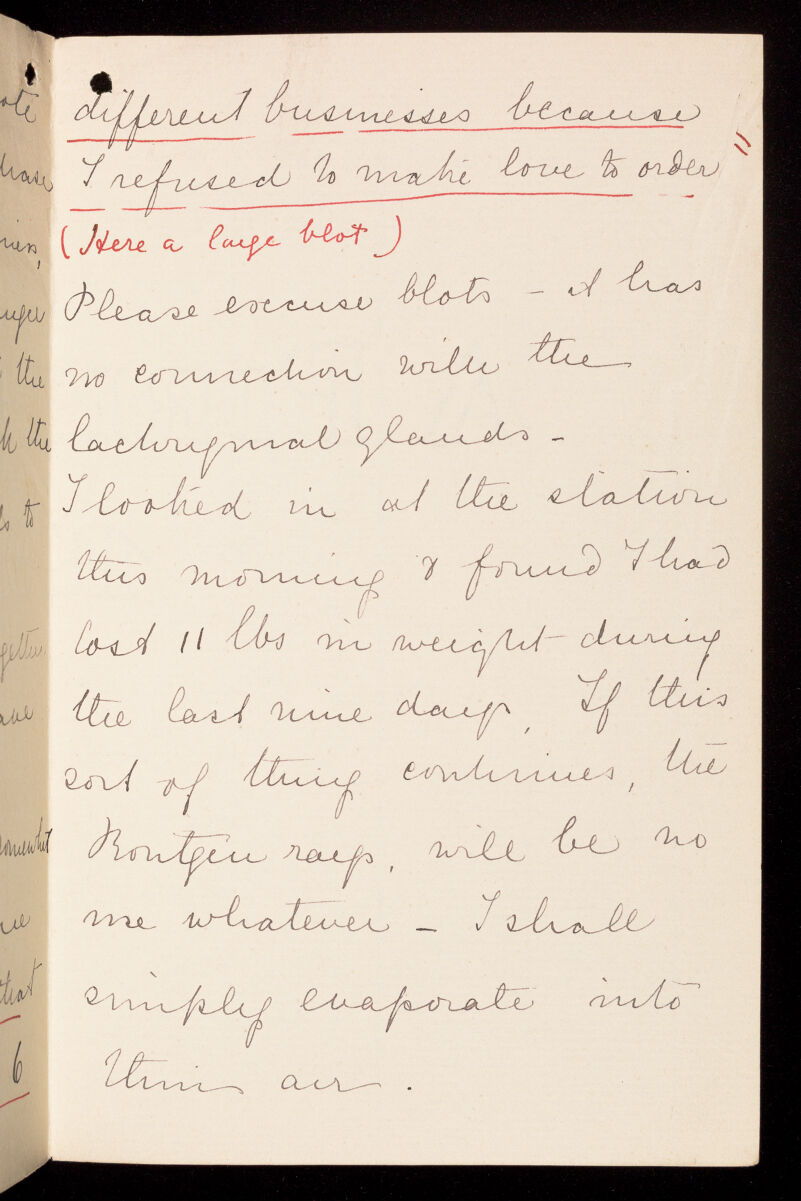 different businesses because
I refused to make love to order "
(Here a large blot)
Please excuse blots – it has
no connection with the
lachrymal glands –
I looked in at the station
this morning & found I had
lost 11 lbs in weight during
the last nine days, If this
sort of thing continues, the
Rontgen rays, will be no
use whatever – I shall
simply evaporate into
thin air .
the
the
to
somewhat
that
6